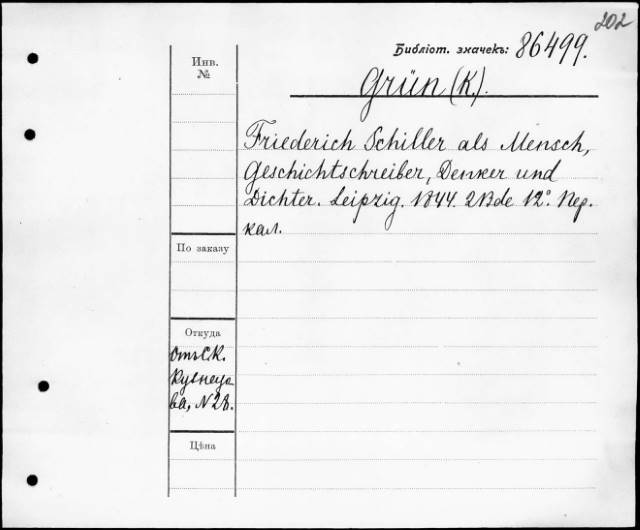 202
Библіот. значекъ: 86499.
Инв.
№
Grün (K.).
Friederich Schiller als Mensch,
Geschichtschreiber, Denker und
Dichter. Leipzig. 1844. 2 Bde 12°. Пер.
кал.
По заказу
Откуда
Отъ С.К.
Кузнецо-
ва, N 28.
Цѣна